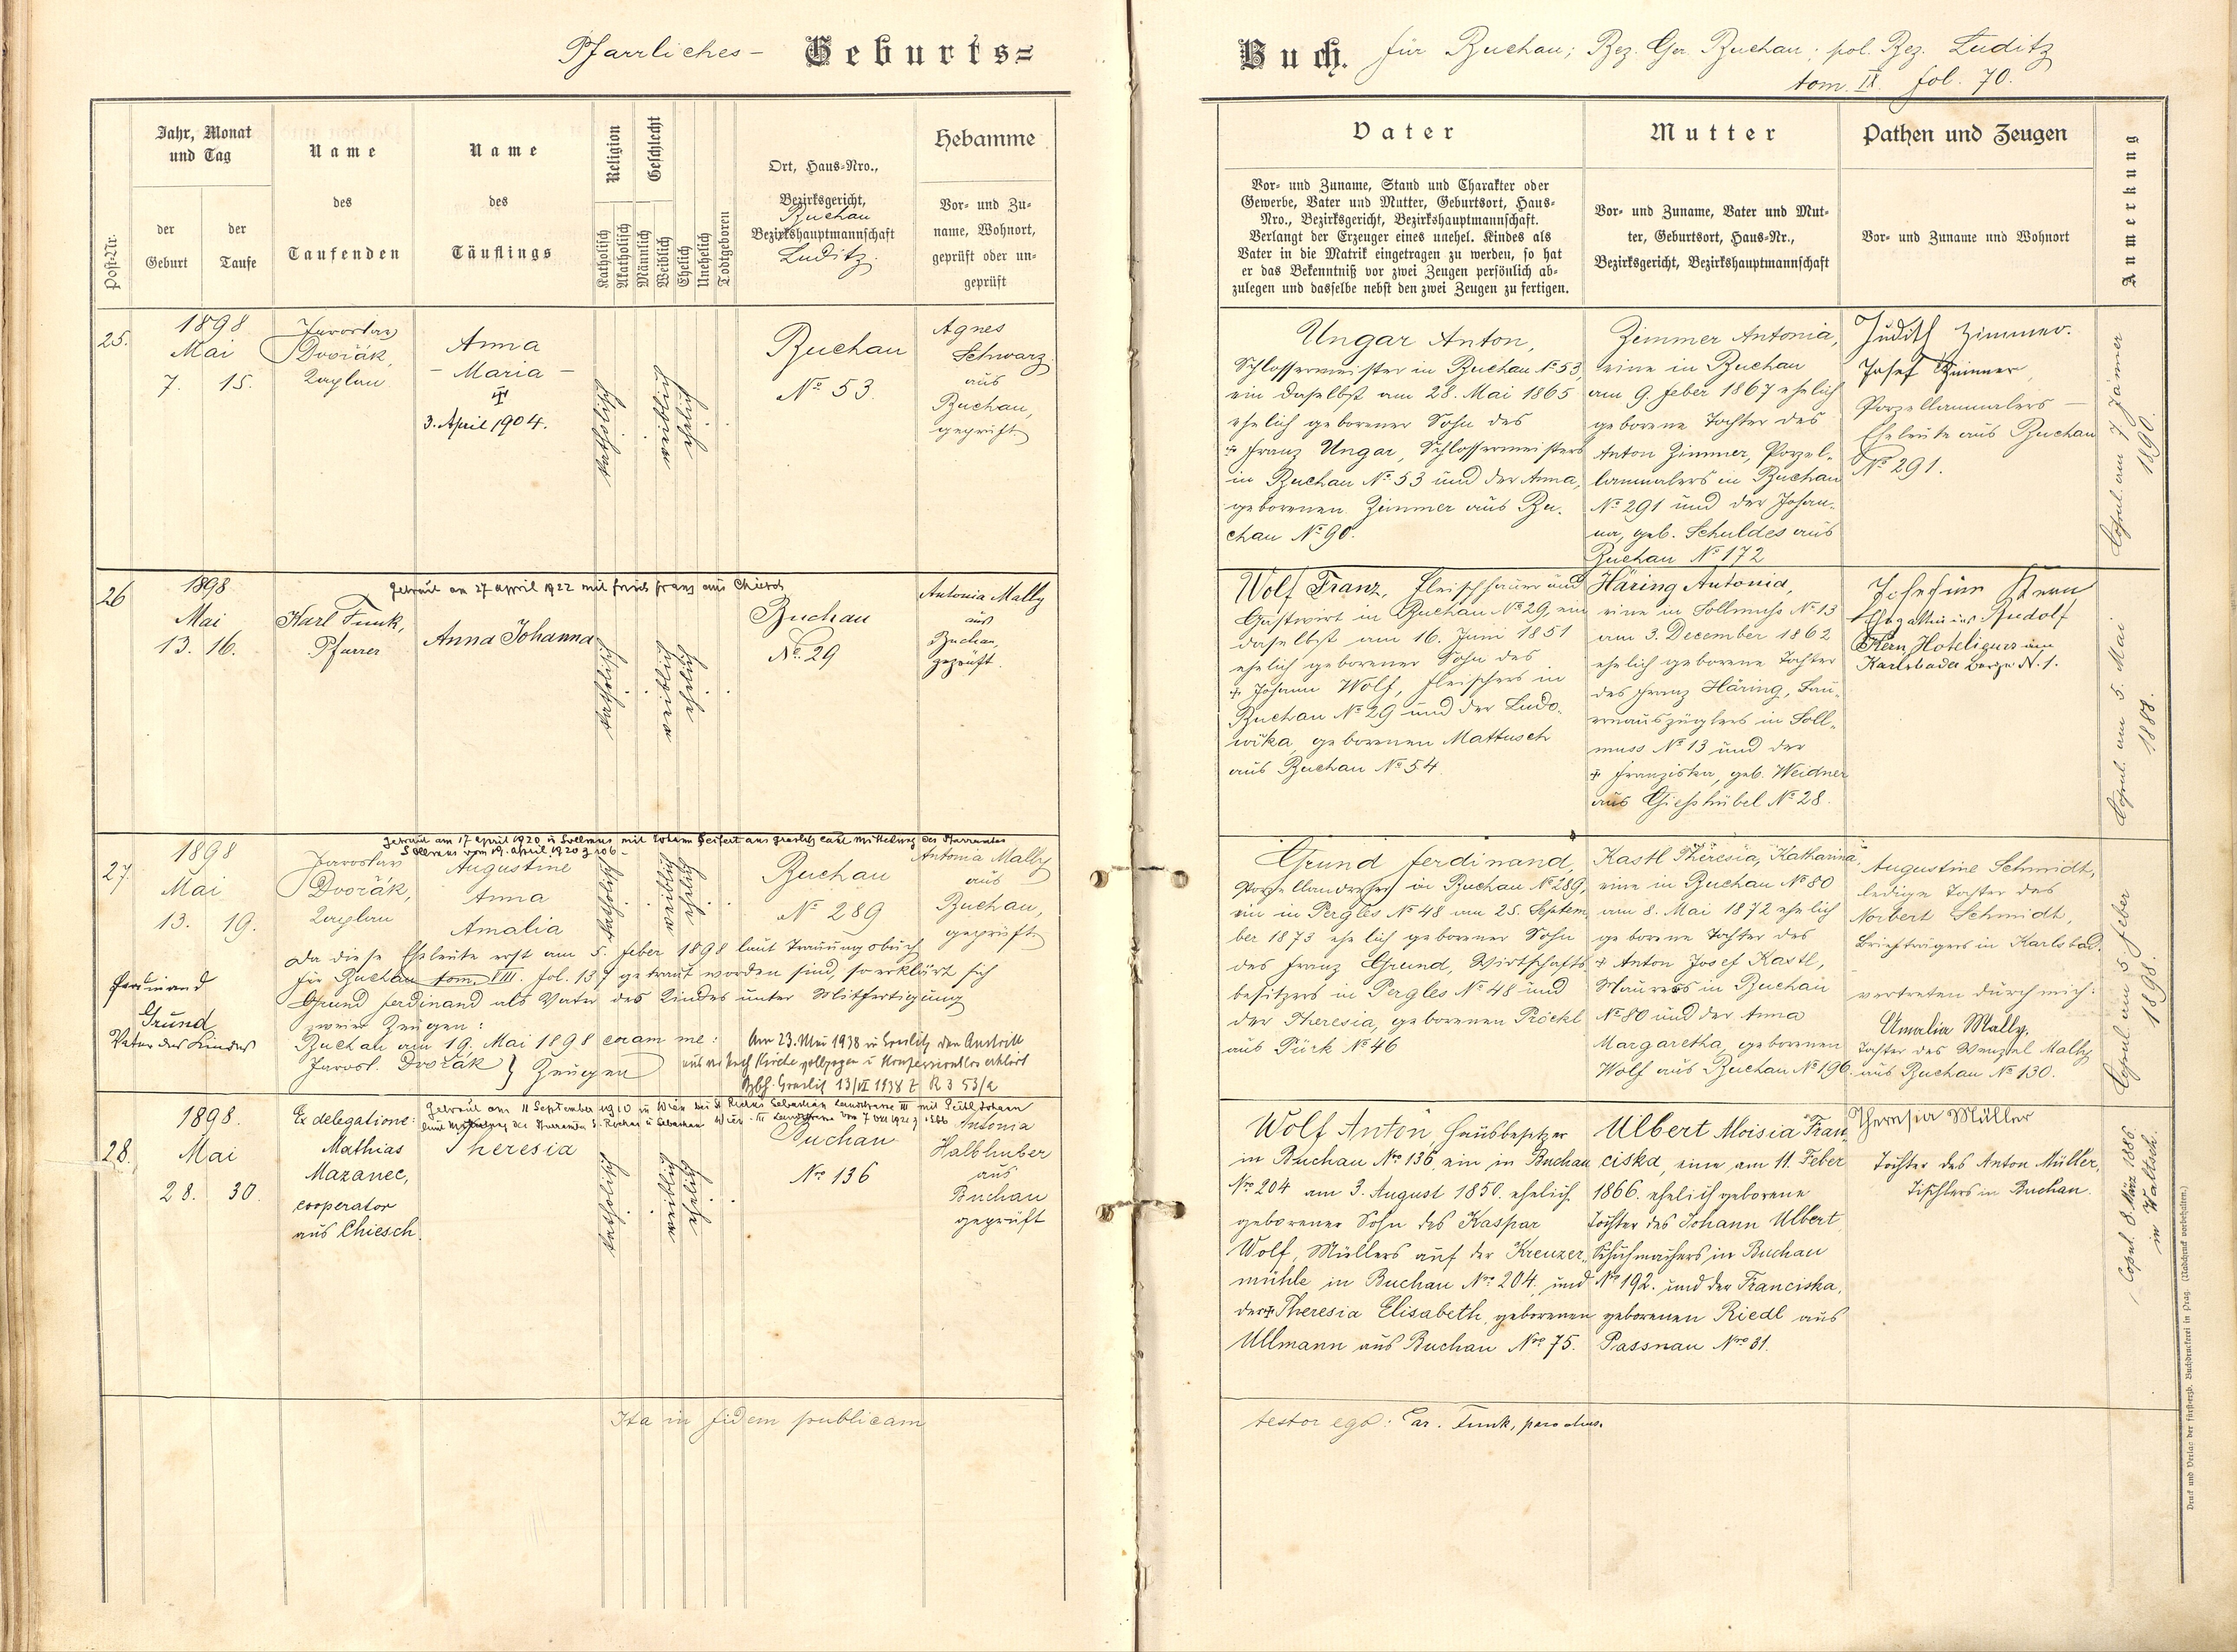 Pfarrliches- Geburts=
Post-Nr.
Jahr, Monat
und Tag
der
Geburt
der
Taufe
Name
des
Taufenden
Name
des
Täuflings
Religion
Katholisch
Akatholisch
Geschlecht
Männlich
Weiblich
Ehelich
Unehelich
Todtgeboren
Ort, Haus=Nro.,
Bezirksgericht,
Buchau
Bezirkshauptmannschaft
Luditz.
Hebamme
Vor= und Zu=
name, Wohnort,
geprüft oder un=
geprüft
25.
1898
Mai
7. 15.
Jaroslav
Dvořák,
Kaplan
Anna
- Maria -
3. April 1904.
katholisch
weiblich
ehelich
Buchau
No 53.
Agnes
Schwarz
aus
Buchau,
geprüft
26
1898
Mai
13. 16.
Getraut am 27 April 1922 mit Franz aus Chiesch
Karl Funk,
Pfarrer
Anna Johanna
katholisch
weiblich
ehelich
Buchau
No. 29
Antonia Mally
aus
Buchau,
geprüft.
27.
1898
Mai
13. 19.
Getraut am 17 April 1920 in Sollmus mit Johann Seifert aus Graslitz laut Mitteilung des Pfarramtes
Sollmus vom 19. April 1920 z 106 -
Jaroslav
Dvořák,
Kaplan
Augustine
Anna
Amalia
katholisch
weiblich
ehelich
Buchau
No 289
Antonia Mally
aus
Buchau,
geprüft
Da diese Eheleute erst am 5. Feber 1898 laut Trauungsbuch
für Buchau tom. VIII. fol. 137 getraut worden sind, so erklärt sich
Grund Ferdinand als Vater des Kindes unter Mitfertigung
zweier Zeugen:
Buchau am 19. Mai 1898 coram me:
Jarosl. Dvořák } Zeugen
Ferdinand
Grund
Vater des Kindes
Am 23. Mai 1938 in Graslitz den Austritt
aus der kath Kirche vollzogen u Konfessionslos erklärt
Bzbh. Graslitz 13/VI 1938 Z R 3 53/2
28.
1898.
Mai
28. 30.
Ex delegatione:
Mathias
Mazanec,
cooperator
aus Chiesch.
Getraut am 11 September 1910 in Wien bei St Rochus Sebastian Landstrasse III mit Johann
Theresia
katholisch
weiblich
ehelich
Buchau
Nro 136
Antonia
Halbhuber
aus
Buchau
geprüft
Ita in fidem publicam
Buch. für Buchau; Bez. Ger. Buchau; pol. Bez. Luditz
tom. IX. fol. 70.
Vater
Vor= und Zuname, Stand und Charakter oder
Gewerbe, Vater und Mutter, Geburtsort, Haus=
Nro., Bezirksgericht, Bezirkshauptmannschaft.
Verlangt der Erzeuger eines unehel. Kindes als
Vater in die Matrik eingetragen zu werden, so hat
er das Bekenntniß vor zwei Zeugen persönlich ab=
zulegen und dasselbe nebst den zwei Zeugen zu fertigen.
Mutter
Vor= und Zuname, Vater und Mut=
ter, Geburtsort, Haus=Nr.,
Bezirksgericht, Bezirkshauptmannschaft
Pathen und Zeugen
Vor= und Zuname und Wohnort
Anmerkung
Ungar Anton,
Schlossermeister in Buchau No 53,
ein daselbst am 28. Mai 1865
ehelich geborener Sohn des
+ Franz Ungar, Schlossermeisters
in Buchau No 53 und der Anna,
geborenen Zimmer aus Bu-
chau No 90.
Zimmer Antonia,
eine in Buchau
am 9. Feber 1867 ehelich
geborene Tochter des
Anton Zimmer, Porzel-
lanmalers in Buchau
No 291 und der Johan-
na, geb. Schuldes aus
Buchau No 172
Judith Zimmer.
Josef Zimmer,
Porzellanmalers -
Eheleute aus Buchau
No 291.
Copul. am 7 Jänner
1890.
Wolf Franz, Fleischhauer und
Gastwirt in Buchau No 29, ein
daselbst am 16. Juni 1851
ehelich geborener Sohn des
+ Johann Wolf, Fleischers in
Buchau No 29 und der Ludo-
wika, geborenen Mattusch
aus Buchau No 54.
Häring Antonia,
eine in Sollmuss No 13
am 3. December 1862
ehelich geborene Tochter
des Franz Häring, Bau-
ernauszüglers in Soll-
muss No 13 und der
+ Franziska, geb. Weidner
aus Giesshübel No 28.
Josefine Kern
Ehegattin des Rudolf
Kern, Hoteliers am
Karlsbader Berge N. 1.
Copul. am 5. Mai
1888.
Grund Ferdinand,
Porzellandreher in Buchau No 289,
ein in Pergles No 48 am 25. Septem-
ber 1873 ehelich geborener Sohn
des Franz Grund, Wirtschafts-
besitzers in Pergles No 48 und
der Theresia, geborenen Pröckl
aus Pürk No 46
Kastl Theresia, Katharina,
eine in Buchau No 80
am 8. Mai 1872 ehelich
geborene Tochter des
+ Anton Josef Kastl,
Maurers in Buchau
No 80 und der Anna
Margaretha, geborenen
Wolf aus Buchau No 196.
Augustine Schmidt,
ledige Tochter des
Norbert Schmidt,
Briefträgers in Karlsbad.
vertreten durch mich:
Amalia Mally,
Tochter des Wenzel Mally
aus Buchau No 130.
Copul. am 5 Feber
1898.
Wolf Anton, Hausbesitzer
in Buchau Nro 136, ein in Buchau
Nro 204 am 3. August 1850. ehelich
geborener Sohn des Kaspar
Wolf, Müllers auf der Kreuzer-
mühle in Buchau Nro 204. und
der + Theresia Elisabeth, geborenen
Ullmann aus Buchau Nro 75.
Ulbert Aloisia Fran-
ciska, eine am 11. Feber
1866. ehelich geborene
Tochter des Johann Ulbert,
Schuhmachers in Buchau
Nro 192. und der Franciska,
geborenen Riedl aus
Passnau Nro 31.
Theresia Müller
Tochter des Anton Müller,
Tischlers in Buchau.
Copul. 8. März 1886.
in Waltsch.
testor ego: Car. Funk, parochus.
Druck und Verlag der fürst-erzb. Buchdruckerei in Prag. (Nachdruck vorbehalten.)